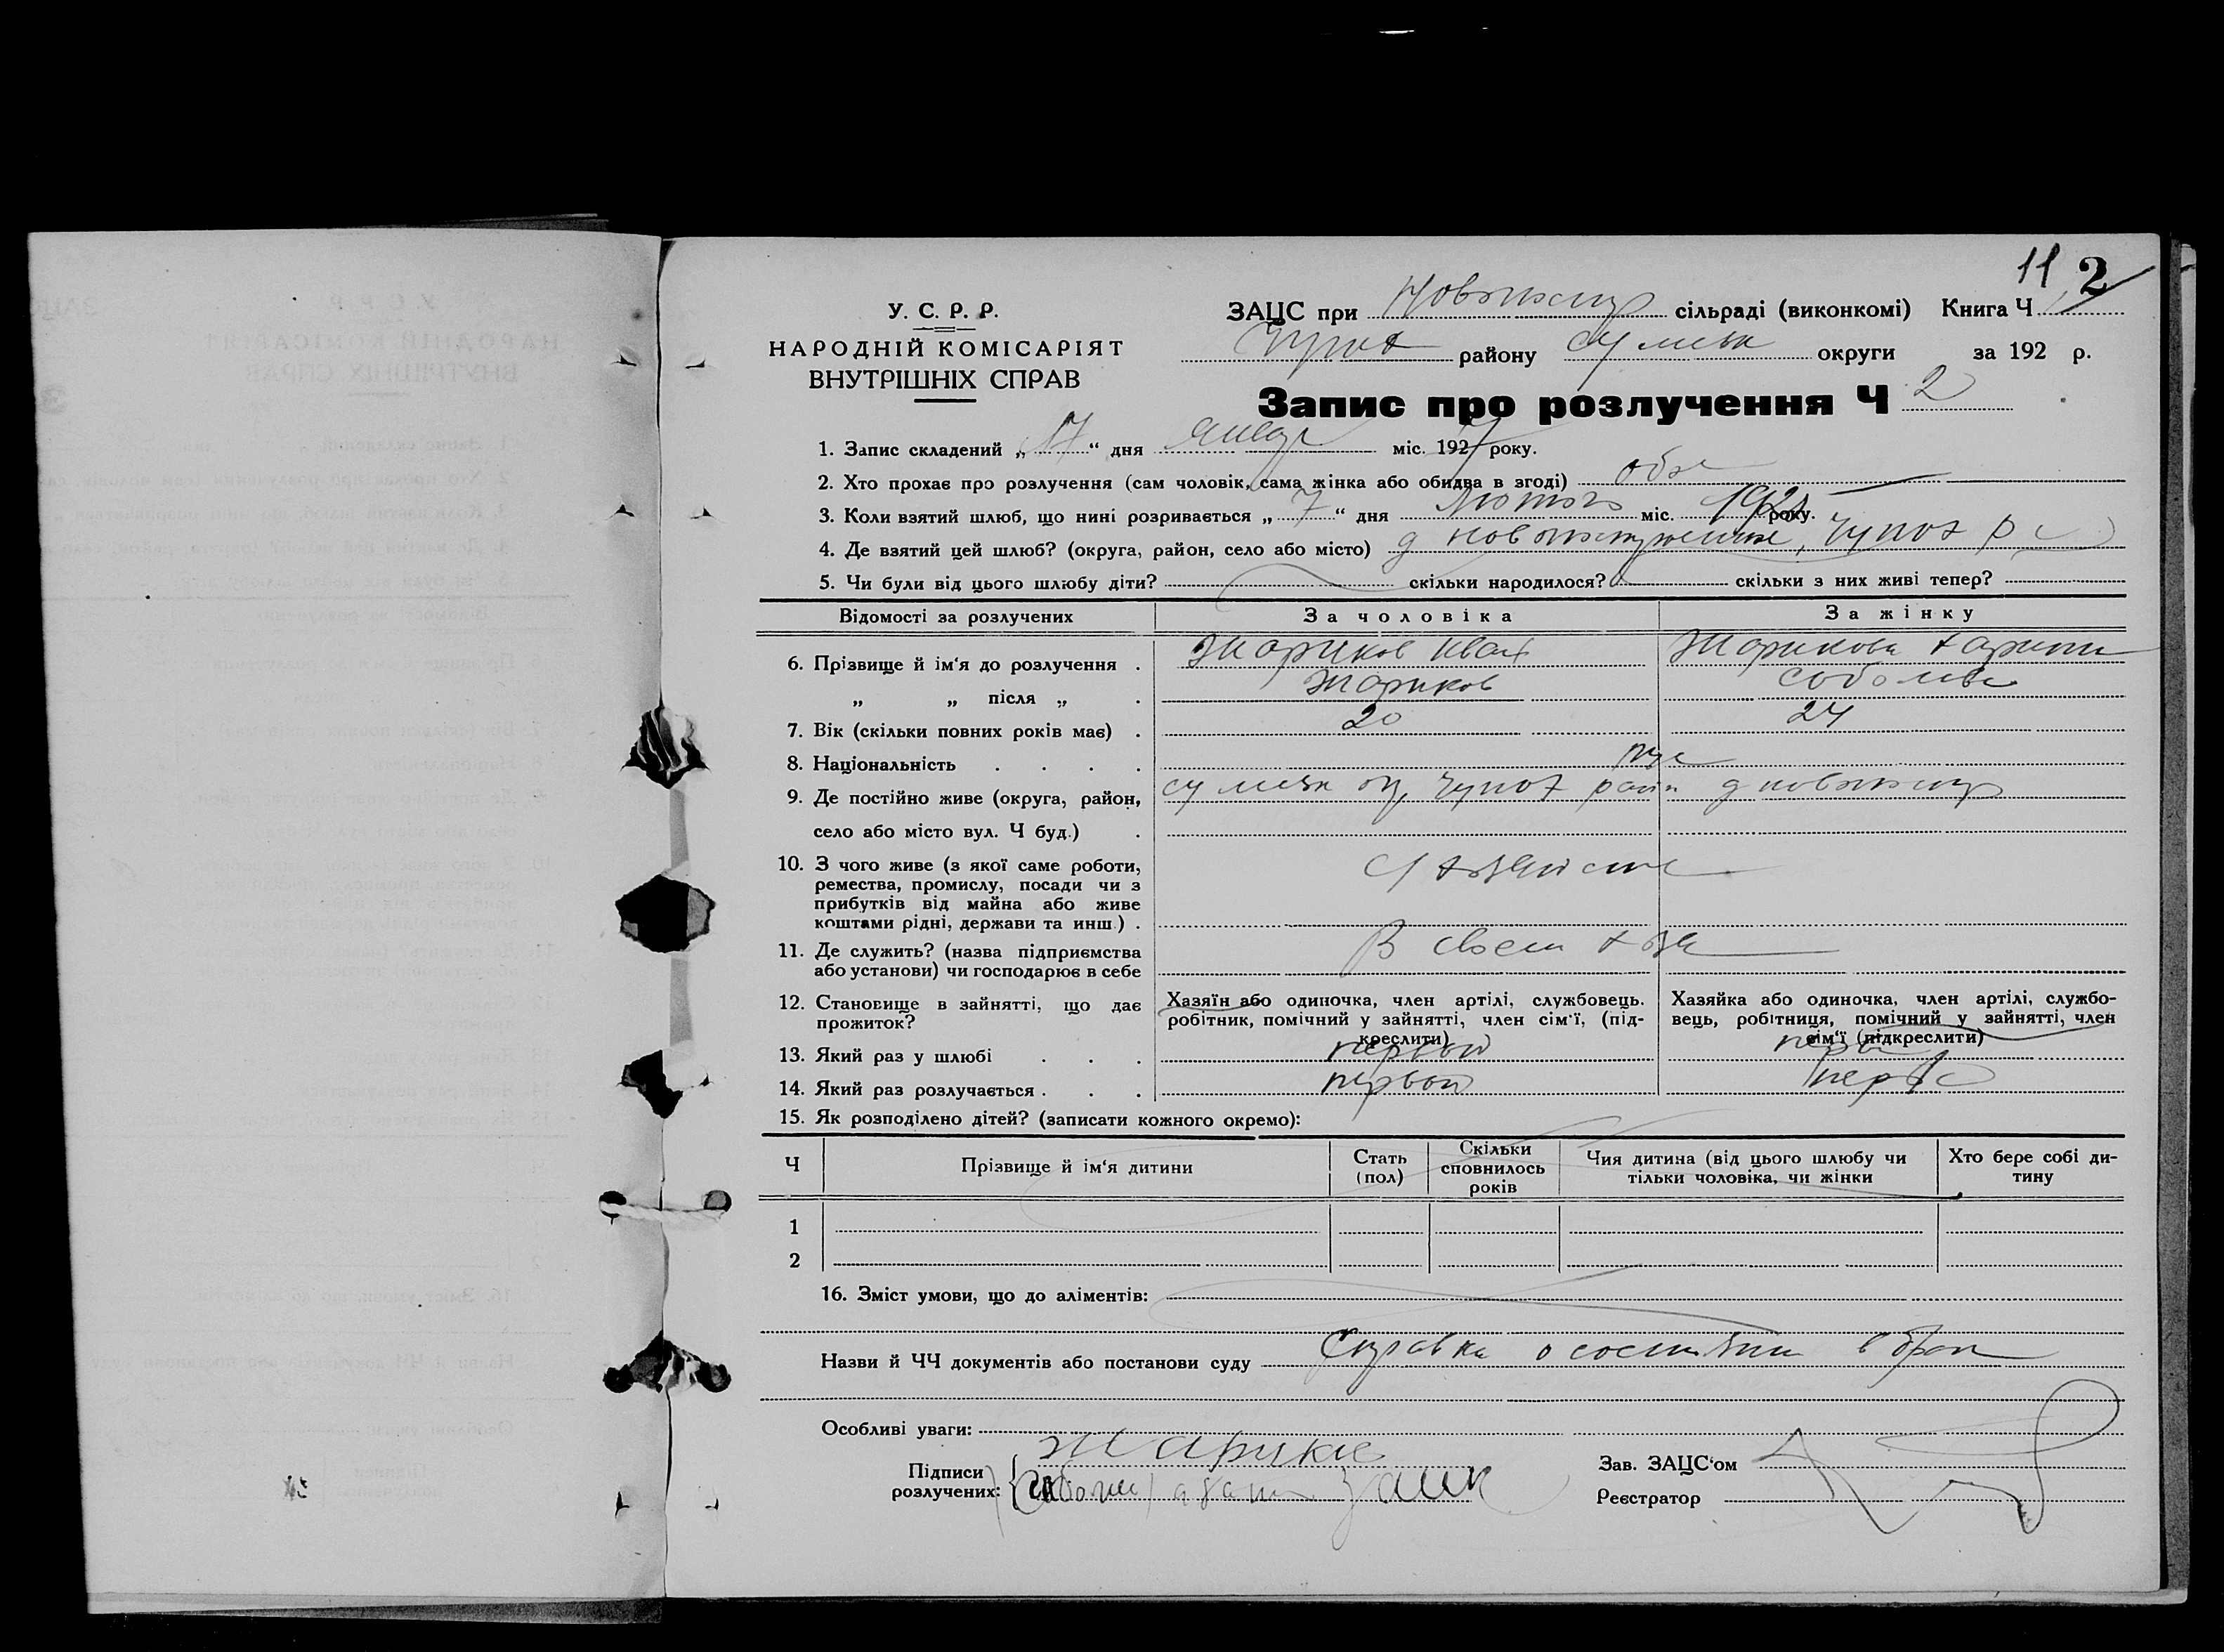 11 2
У. С. Р. Р.
НАРОДНІЙ КОМІСАРІЯТ
ВНУТРІШНІХ СПРАВ
ЗАЦС при сільраді (виконкомі) Книга Ч
району округи за 192 р.
Запис про розлучення Ч 2
1. Запис складений „ 17 “ дня январ міс. 1927 року.
2. Хто прохає про розлучення (сам чоловік, сама жінка або обидва в згоді) обе
3. Коли взятий шлюб, що нині розривається „ 7 “ дня лютого міс. року.
4. Де взятий цей шлюб? (округа, район, село або місто)
5. Чи були від цього шлюбу діти? скільки народилося? скільки з них живі тепер?
Відомості за розлучених За чоловіка За жінку
6. Прізвище й ім‘я до розлучення . Жариков Иван Жарикова
„ „ після „ . Жариков
7. Вік (скільки повних років має) . 20 24
8. Національність . . . . рус
9. Де постійно живе (округа, район,
село або місто вул. Ч буд.) .
10. З чого живе (з якої саме роботи,
ремества, промислу, посади чи з
прибутків від майна або живе
коштами рідні, держави та инш.) .
11. Де служить? (назва підприємства
або установи) чи господарює в себе В своем
12. Становище в зайнятті, що дає
прожиток?
Хазяїн або одиночка, член артілі, службовець.
робітник, помічний у зайнятті, член сім‘ї, (під-
креслити)
Хазяйка або одиночка, член артілі, службо-
вець, робітниця, помічний у зайнятті, член
сім‘ї (підкреслити)
13. Який раз у шлюбі . . . первый
14. Який раз розлучається . . . первый
15. Як розподілено дітей? (записати кожного окремо):
Ч Прізвище й ім‘я дитини Стать (пол) Скільки сповнилось років Чия дитина (від цього шлюбу чи тільки чоловіка, чи жінки Хто бере собі ди-тину
1
2
16. Зміст умови, що до аліментів:
Назви й ЧЧ документів або постанови суду Справка о состоянии в брак
Особливі уваги:
Підписи
розлучених:
Зав. ЗАЦС‘ом
Реєстратор